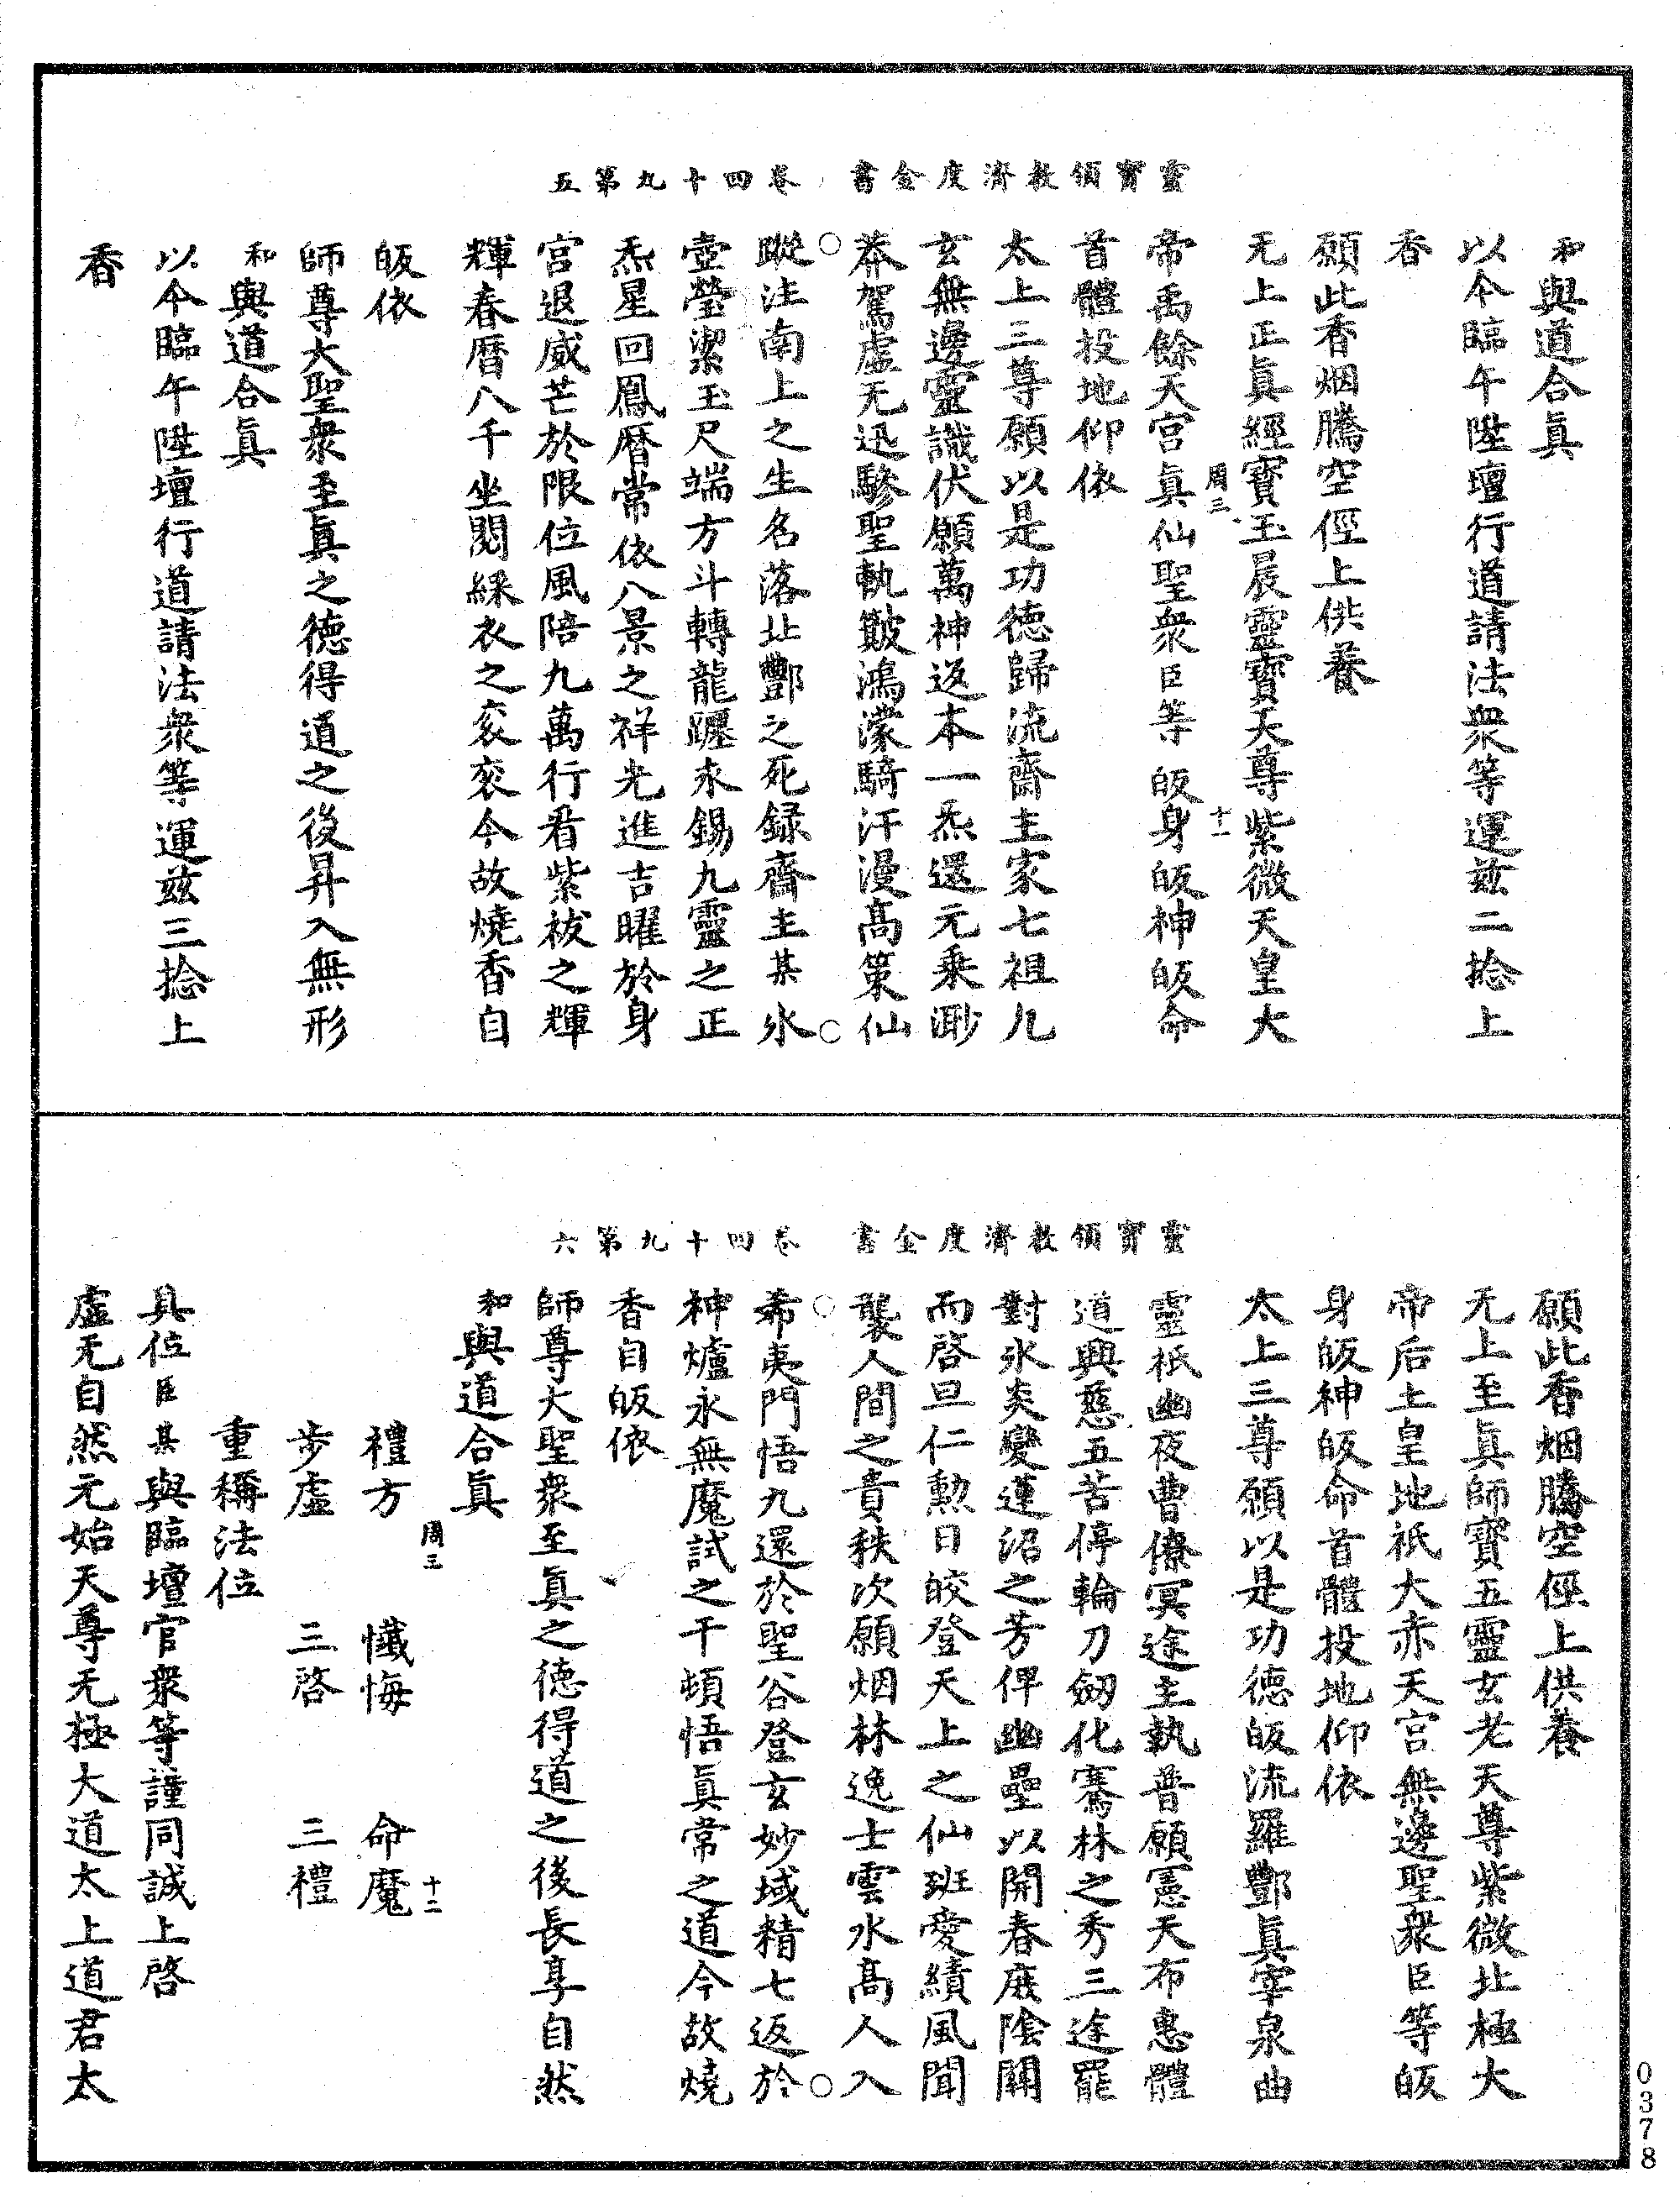 靈寳領教濟度金書　卷四十九第五
和與道合眞
以今臨午陞壇行道請法衆等運兹二捻上
香
願此香烟騰空徑上供養
无上正眞經寳玉晨靈寳天尊紫微天皇大
周三　十一
帝禹餘天宮眞仙聖衆臣等皈身皈神皈命
首體投地仰依
太上三尊願以是功德歸流齋主家七祖九
玄無邊靈識伏願萬神返本一炁還元乗渺
莽駕虛无迅驂聖軌皺鴻濛騎汗漫髙策仙
蹤注南上之生名落北酆之死録齋主某氷
壺瑩潔玉尺端方斗轉龍躔永錫九靈之正
炁星回鳳曆常依八景之祥光進吉曜於身
宮退威芒於限位風陪九萬行看紫袚之輝
輝春曆八千坐閲綵衣之衮衮今故燒香自
皈依
師尊大聖衆至眞之德得道之後昇入無形
和與道合眞
以今臨午陞壇行道請法衆等運兹三捻上
香
靈寳領教濟度金書　卷四十九第六
願此香烟騰空徑上供養
无上至眞師寳五靈玄老天尊紫微北極大
帝后土皇地祇大赤天宮無邊聖衆臣等皈
身皈神皈命首體投地仰依
太上三尊願以是功德皈流羅酆眞宰泉曲
靈祇幽夜曹僚冥途主執普願憲天布惠體
道興慈五苦停輪刀劒化騫林之秀三途罷
對氷炎變蓮沼之芳俾幽壘以開春庻陰關
而啓旦仁勲日皎登天上之仙班愛績風聞
襲人間之貴秩次願烟林逸士雲水髙人入
希夷門悟九還於聖谷登玄妙域精七返於
神爐永無魔試之干頓悟眞常之道今故燒
香自皈依
師尊大聖衆至眞之德得道之後長享自然
和與道合眞
周三　十二
禮方　懺悔　命魔
步虛　三啓　三禮
重稱法位
具位臣某與臨壇官衆等謹同誠上啓
虛无自然元始天尊无極大道太上道君太
0378